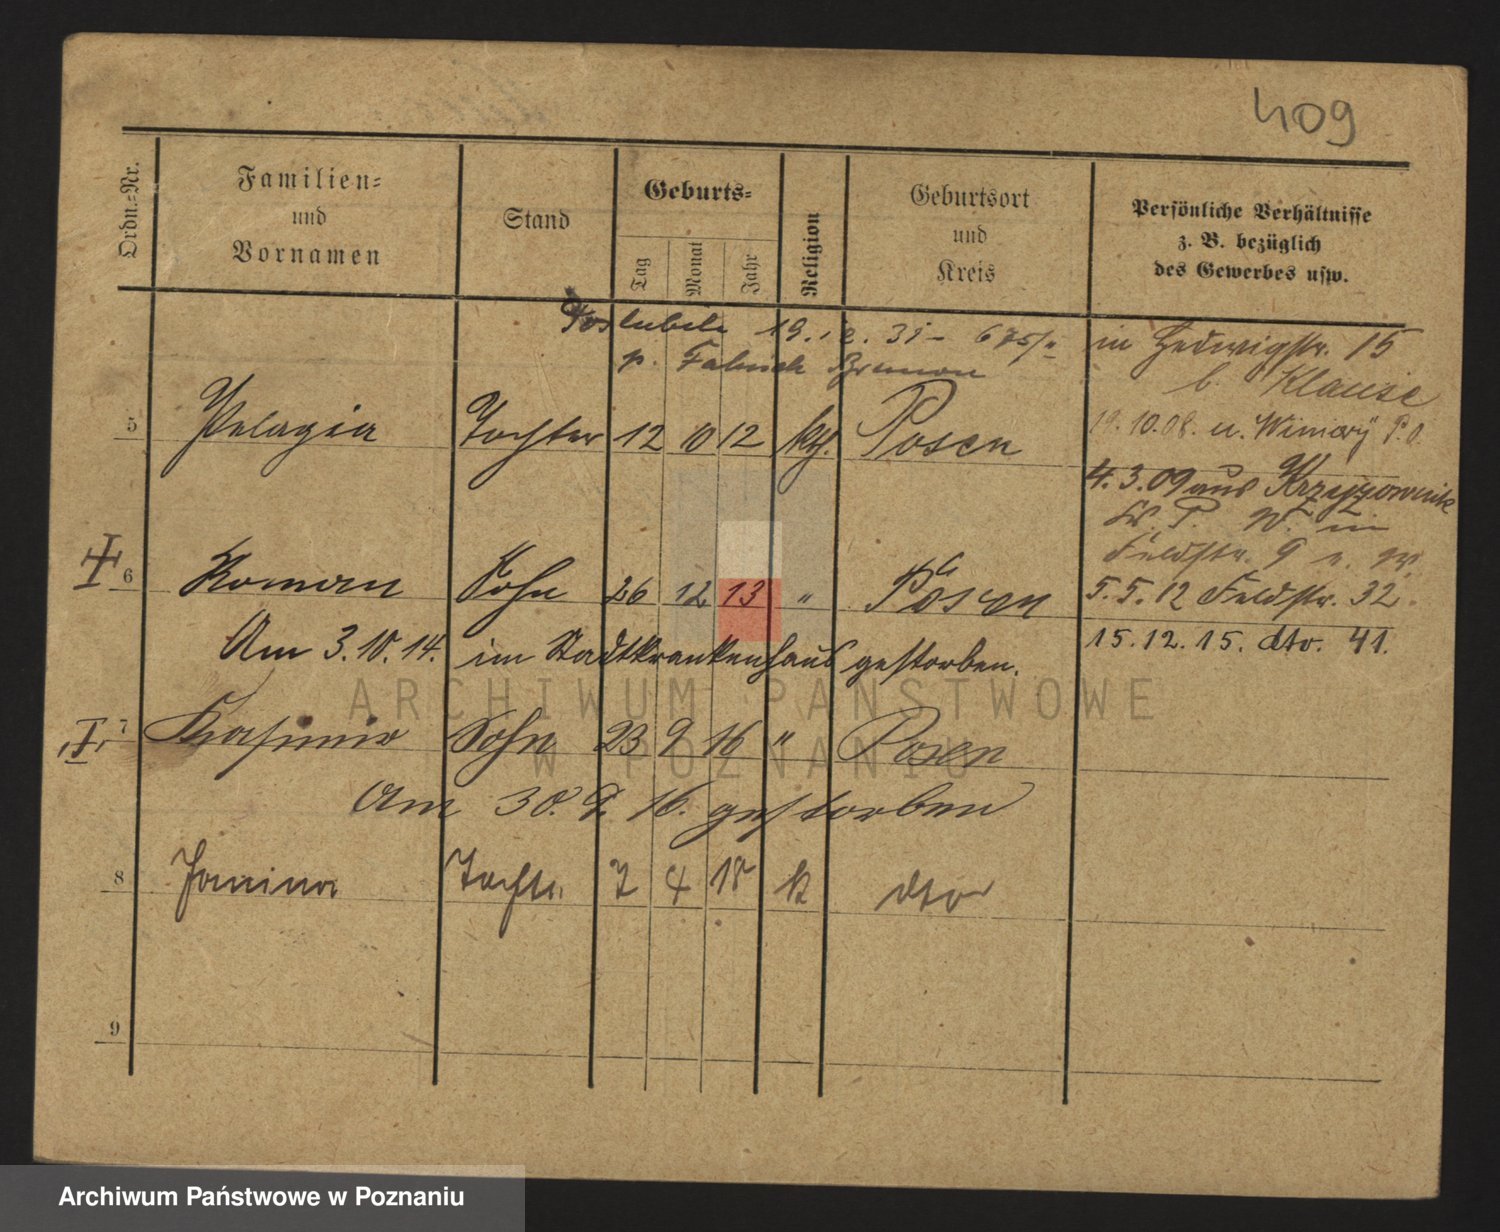 409
Ordn.-Nr.
Familien-
und
Vornamen
Stand
Geburts-
Tag
Monat
Jahr
Religion
Geburtsort
und
Kreis
Persönliche Verhältnisse
z. B. bezüglich
des Gewerbes usw.
19.12.31 -
p.
in Hedwigstr. 15
b. Klause
5 Pelagia Tochter 12 10 12 kth. Posen
19.10.08. n. Winiary P.O.
4.3.09 aus Krzyzownik
Kr. P. W. in
Feldstr. 9
6 Roman Sohn 26 12 13 " Posen
5.5.12 Feldstr. 32.
Am 3.10.14. im Stadtkrankenhaus gestorben.
15.12.15. dto. 41.
ARCHIWUM PAŃSTWOWE
W POZNANIU
7 Kasimir Sohn 23 9 16 " Posen
Am 30.9.16. gestorben
8 Janina Tochter 7 4 18 k dto
9
Archiwum Państwowe w Poznaniu